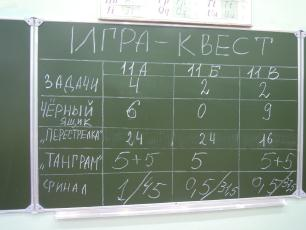 ИГРА - КВЕСТ
11А 11Б 11В
ЗАДАЧИ 4 2 2
ЧЁРНЫЙ 6 0 9
ЯЩИК
"ПЕРЕСТРЕЛКА" 24 24 16
"ТАНГРАМ" 5+5 5 5+5
ФИНАЛ 1/45 0,5/31,5 0,5/